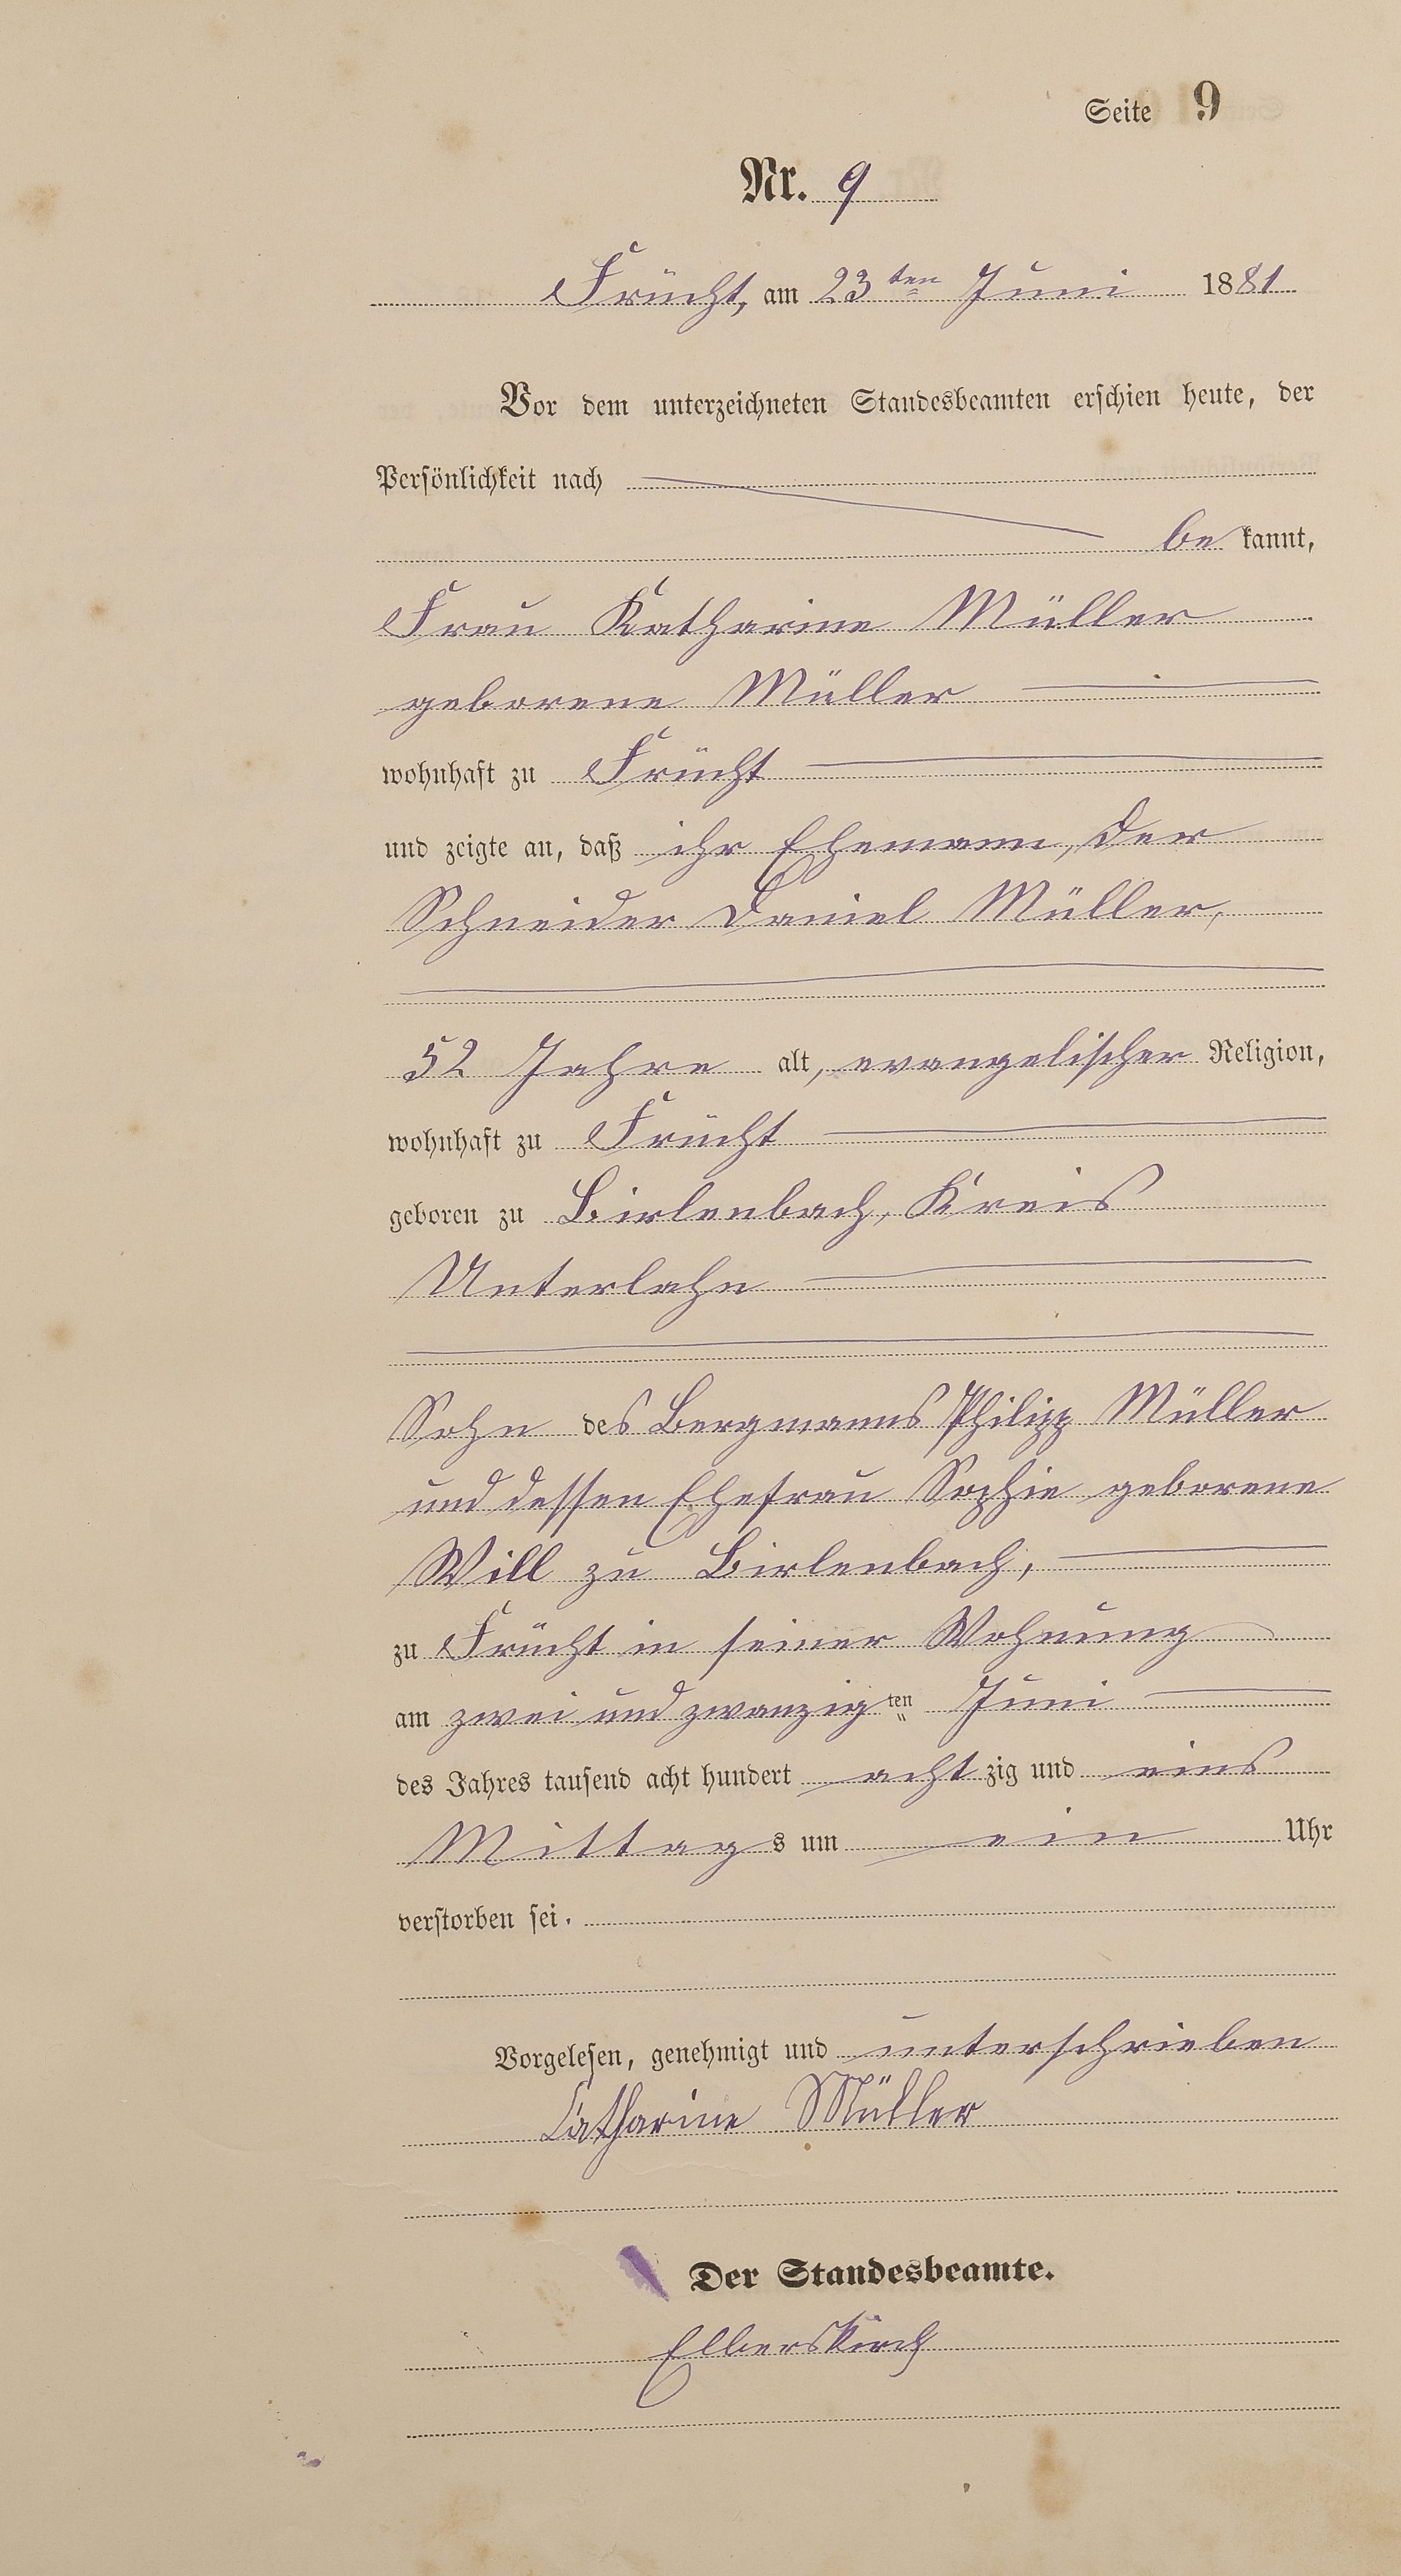 Seite 9
Nr. 9
Frücht, am 23ten Juni 1881
Vor dem unterzeichneten Standesbeamten erschien heute, der
Persönlichkeit nach
be kannt,
Frau Katharine Müller
geborene Müller
wohnhaft zu Frücht
und zeigte an, daß ihr Ehemann, der
Schneider Daniel Müller,
52 Jahre alt, evangelischer Religion,
wohnhaft zu Frücht
geboren zu Birlenbach, Kreis
Unterlahn
Sohn des Bergmanns Philipp Müller
und dessen Ehefrau Sophie geborene
Will zu Birlenbach,
zu Frücht in seiner Wohnung
am zwei und zwanzigten Juni
des Jahres tausend acht hundert acht zig und eins
Mittags um ein Uhr
verstorben sei.
Vorgelesen, genehmigt und unterschrieben
Catharine Müller
Der Standesbeamte.
Elberskirch